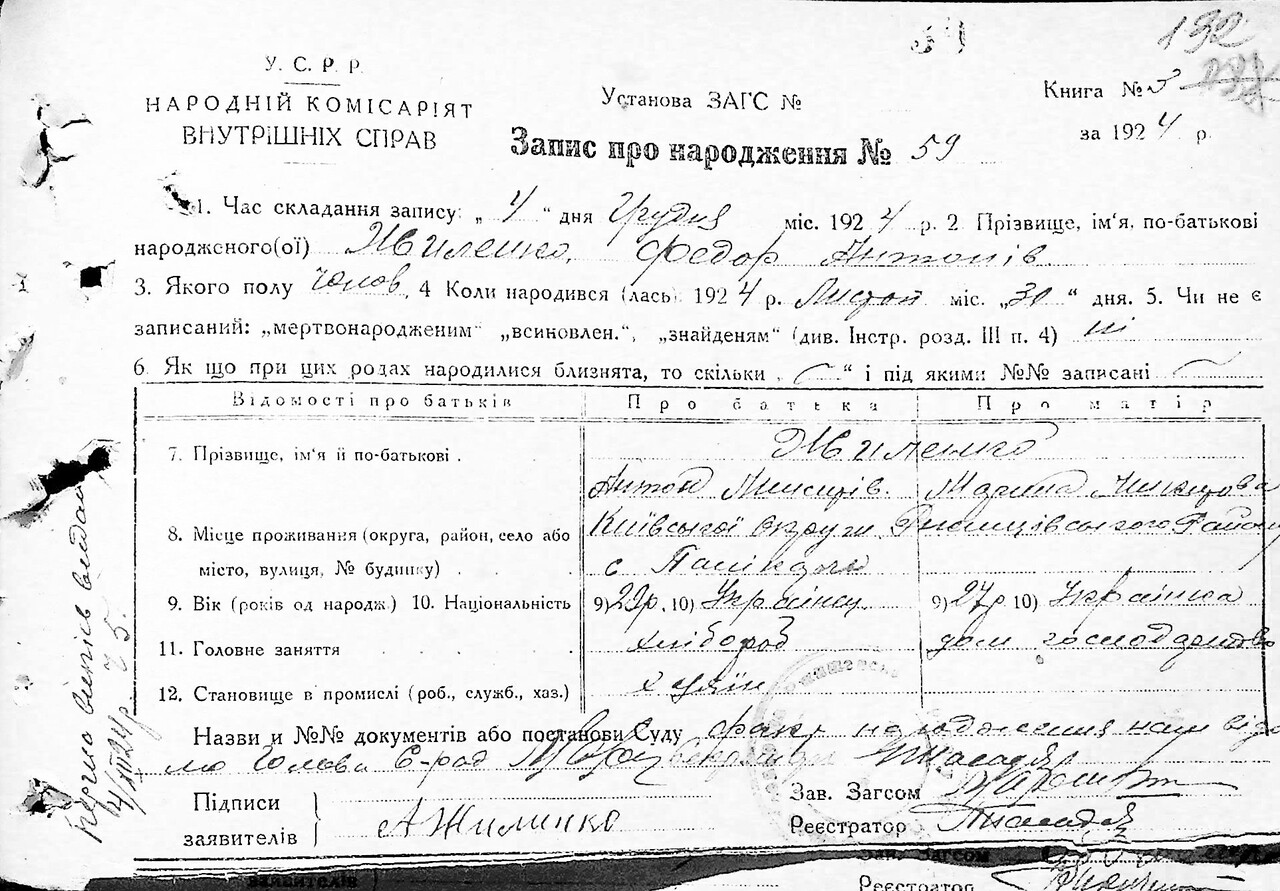 192
У. С. Р. Р.
НАРОДНІЙ КОМІСАРІЯТ
ВНУТРІШНІХ СПРАВ
Установа ЗАГС №
Книга № 3
за 1924 р.
Запис про народження № 59
1. Час складання запису: „ 4 “ дня Грудня міс. 1924 р. 2 Прізвище, ім'я, по-батькові
народженого(ої) Жиленко, Федор Антонів
3. Якого полу Чолов. 4 Коли народився (лась) 1924 р. Листоп міс. „30“ дня. 5. Чи не є
записаний: „мертвонародженим“ „всиновлен.“, „знайденям“ (див. Інстр. розд. III п. 4) ні
6. Як що при цих родах народилися близнята, то скільки „ “ і під якими №№ записані
Відомості про батьків Про батька Про матір
7. Прізвище, ім'я й по-батькові . Жиленко
Антон Микитів. Марина
8. Місце проживання (округа, район, село або Київської округи Район
місто, вулиця, № будинку) . . с
9. Вік (років од народж.) 10. Національність 9) 29р. 10) Українец 9) 27р. 10) Українка
11. Головне заняття . . . . хлібороб дом господарство
12. Становище в промислі (роб., служб., хаз.) хазяїн
Назви и №№ документів або постанови Суду факт народження нам відо
мо Голова С-рад Секретарь
Підписи
заявителів
А Жилинко
Зав. Загсом
Реєстратор
заявителів
Зав. Загсом
Реєстратор
4/XII 24р.